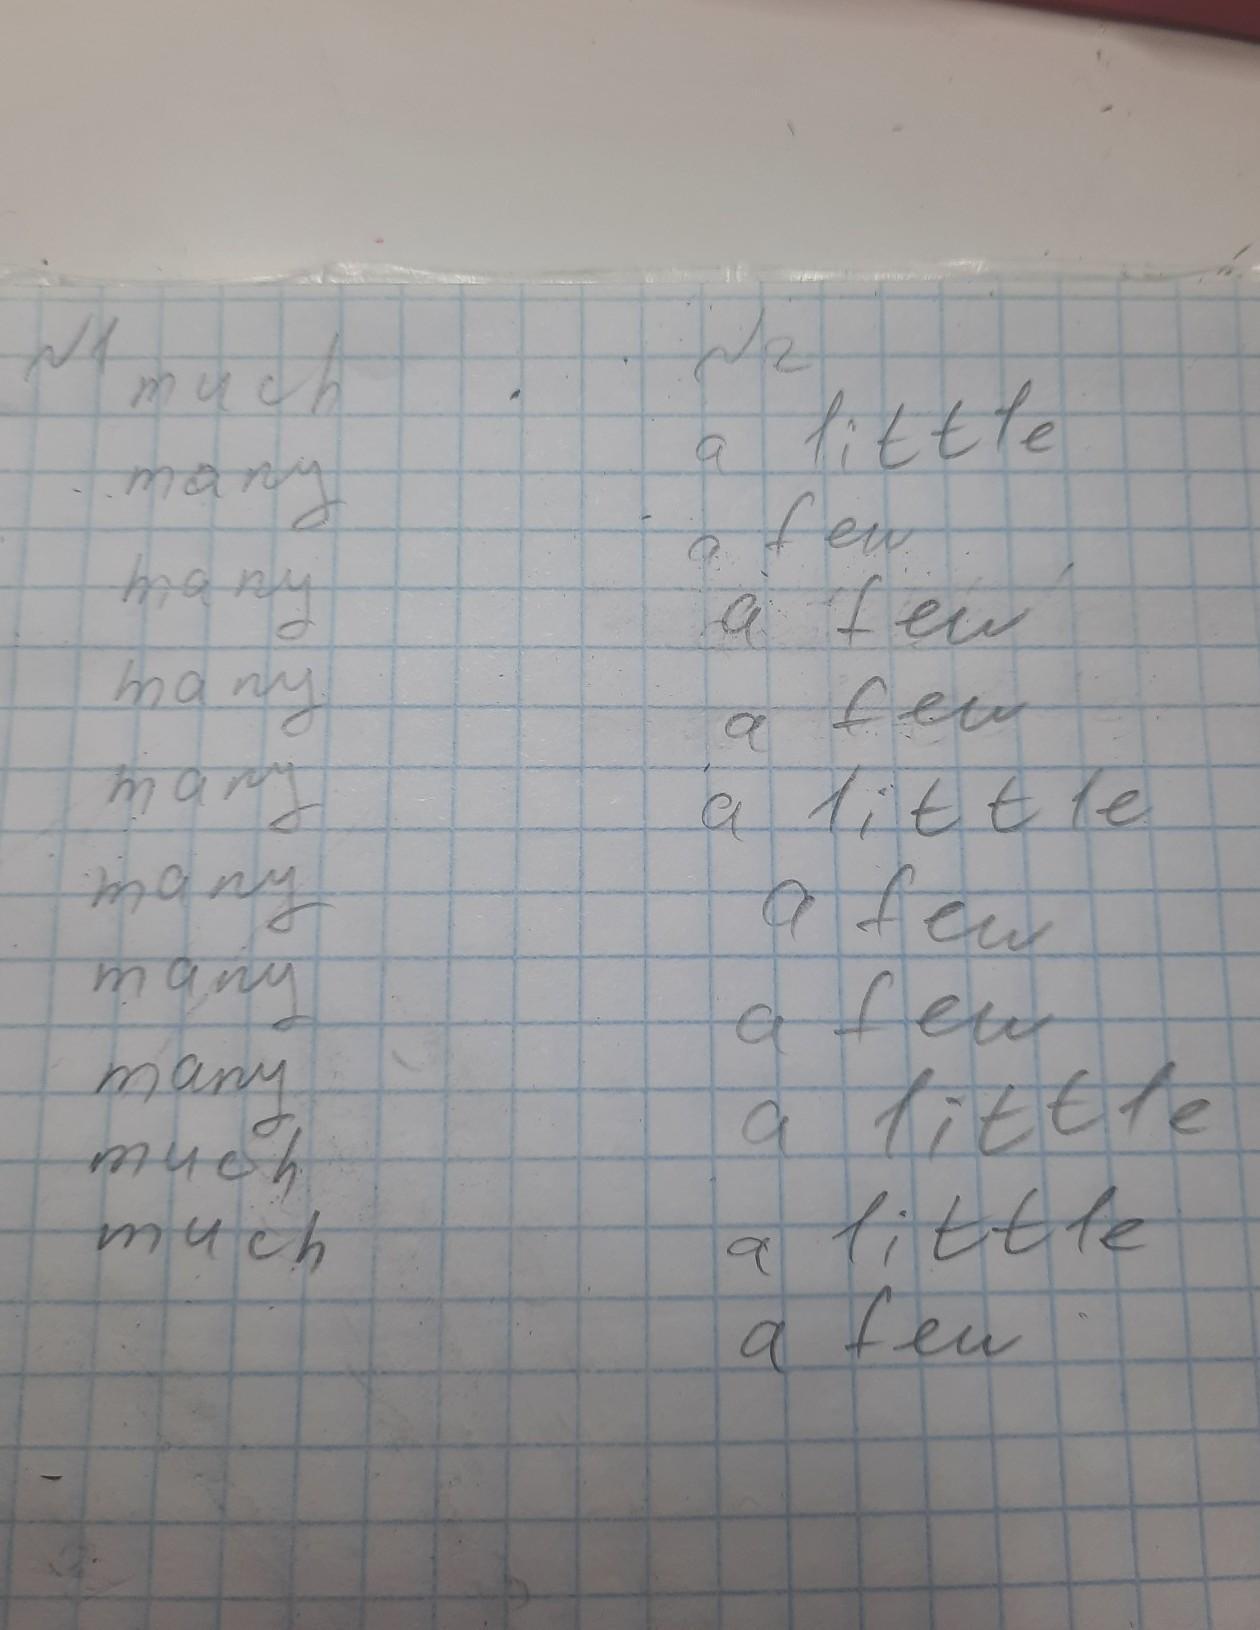 №1
much
many
many
many
many
many
many
many
much
much
№2
a little
a few
a few
a few
a little
a few
a few
a little
a little
a few